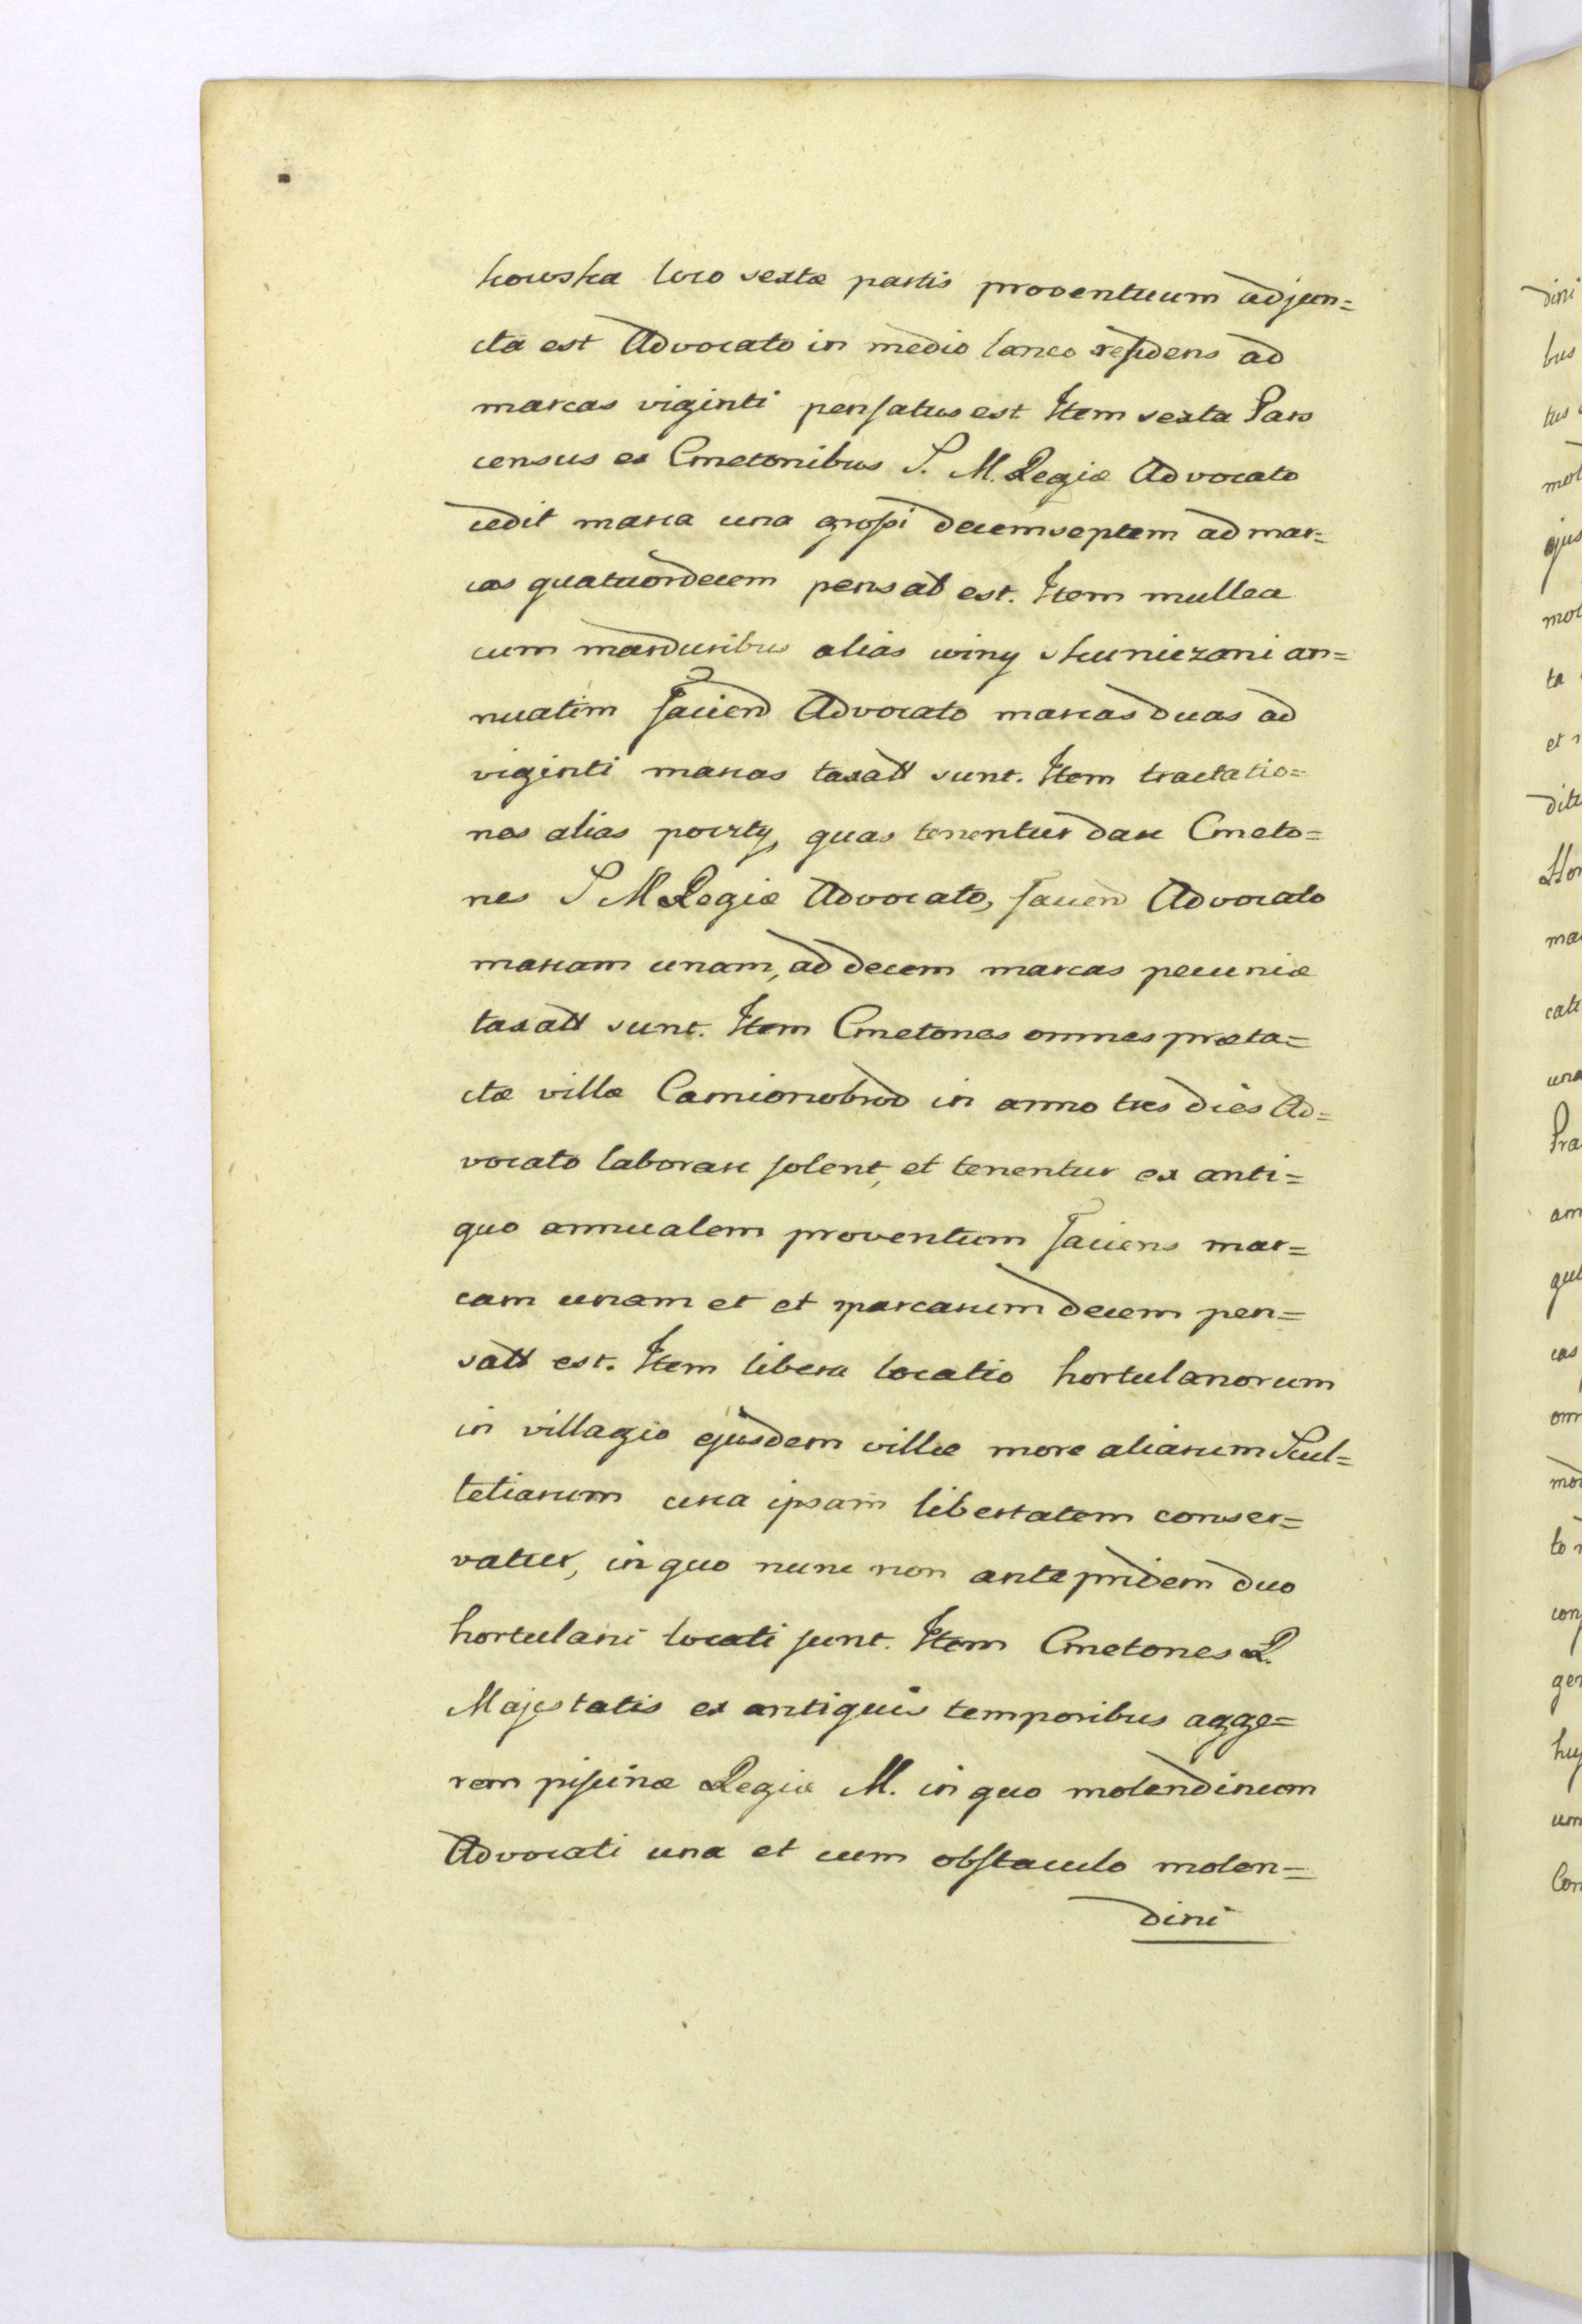 kowska loco sextæ partis proventuum adjun=
cta est Advocato in medio laneo residens ad
marcas viginti pensatus est Item sexta Pars
census ex Cmetonibus S. M. Regiæ Advocato
cedit marca una grossi decemseptem ad mar=
cas quatuordecem pensat est. Item mulcta
cum marduribus alias winy y kuniczani an=
nuatim faciend Advocato marcas duas ad
viginti marcas taxatt sunt. Item tractatio=
nes alias poczty, quas tenentur dare Cmeto=
nes S M Regiæ Advocato, faciend Advocato
marcam unam, ad decem marcas pecuniæ
taxatt sunt. Item Cmetones omnes præta=
ctæ villæ Camionobrod in anno tres dies Ad=
vocato laborare solent, et tenentur ex anti=
quo annualem proventum faciens mar=
cam unam et et marcarum decem pen=
satt est. Item libera locatio hortulanorum
in villagio ejusdem villæ more aliarum Scul=
tetiarum circa ipsam libertatem conser=
vatur, in quo nunc non ante pridem duo
hortulani locati sunt. Item Cmetones R.
Majestatis ex antiquis temporibus agge=
rem piscinæ Regiæ M. in quo molendinum
Advocati una et cum obstaculo molen=
dini
dini
bus
tus
mol
ejus
ta
et
Hor
ma
cat
una
Pra
am
cas
to
ger
um
Con